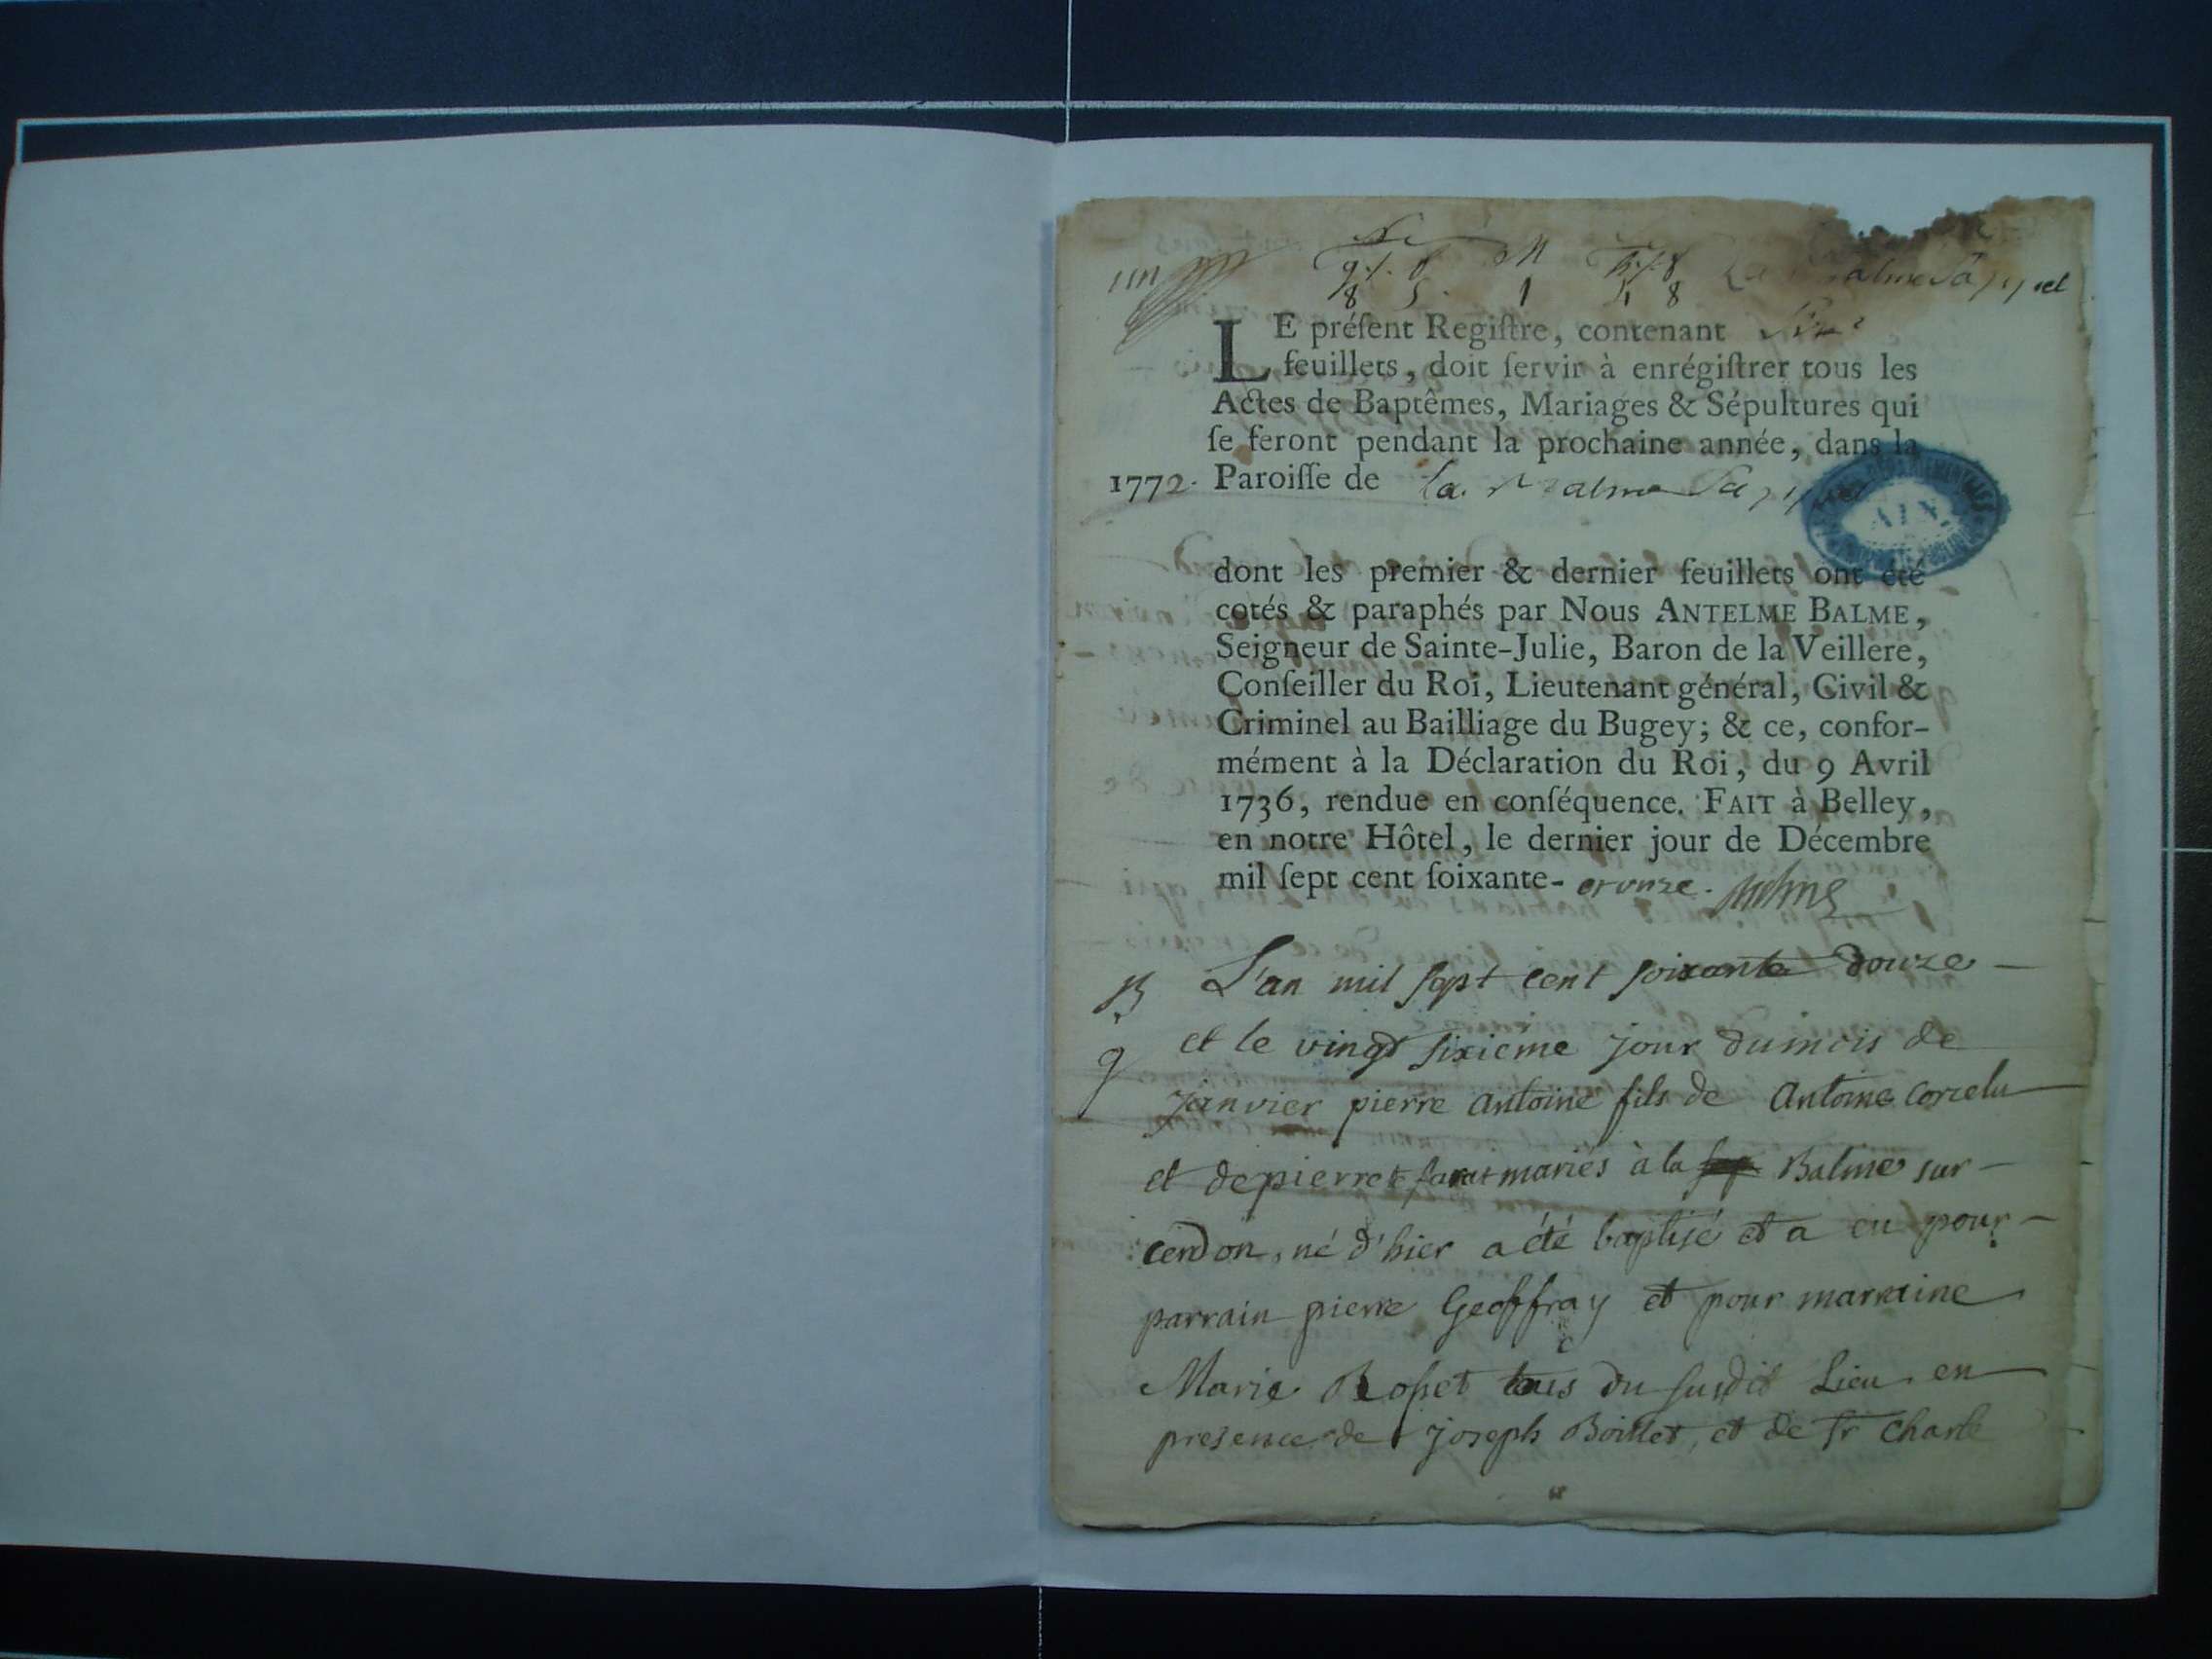 LE préſent Regiſtre, contenant Six
feuillets, doit ſervir à enrégiſtrer tous les
Actes de Baptêmes, Mariages & Sépultures qui
ſe feront pendant la prochaine année, dans la
1772. Paroiſſe de la Balme
AIN
dont les premier & dernier feuillets ont été
cotés & paraphés par Nous ANTELME BALME,
Seigneur de Sainte-Julie, Baron de la Veillere,
Conſeiller du Roi, Lieutenant général, Civil &
Criminel au Bailliage du Bugey; & ce, confor-
mément à la Déclaration du Roi, du 9 Avril
1736, rendue en conſéquence. FAIT à Belley,
en notre Hôtel, le dernier jour de Décembre
mil ſept cent ſoixante- et onze. Balme
B L'an mil sept cent soixante douze
et le vingt sixieme jour du mois de
janvier pierre antoine fils de Antoine corcelu
et de pierrete mariés à la Balme sur
cerdon, né d'hier a été baptisé et a eu pour
parrain pierre Geoffray et pour marraine
Marie Rosset tous du susdit Lieu en
presence de joseph Boillet, et de fr charle